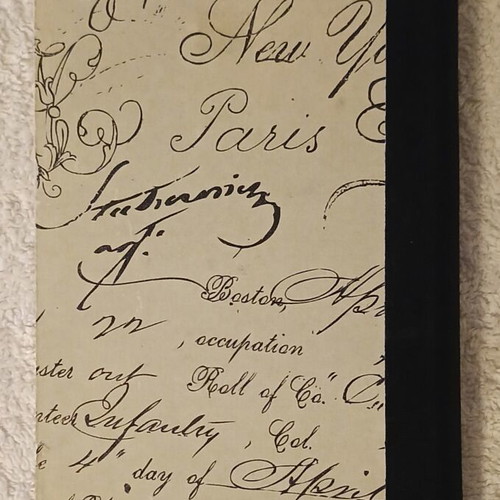 New Yo
Paris
agt.
Boston, Apr
22, occupation
uster out Roll of Co. "C"
nteer Infantry, Col.
e 4" day of April